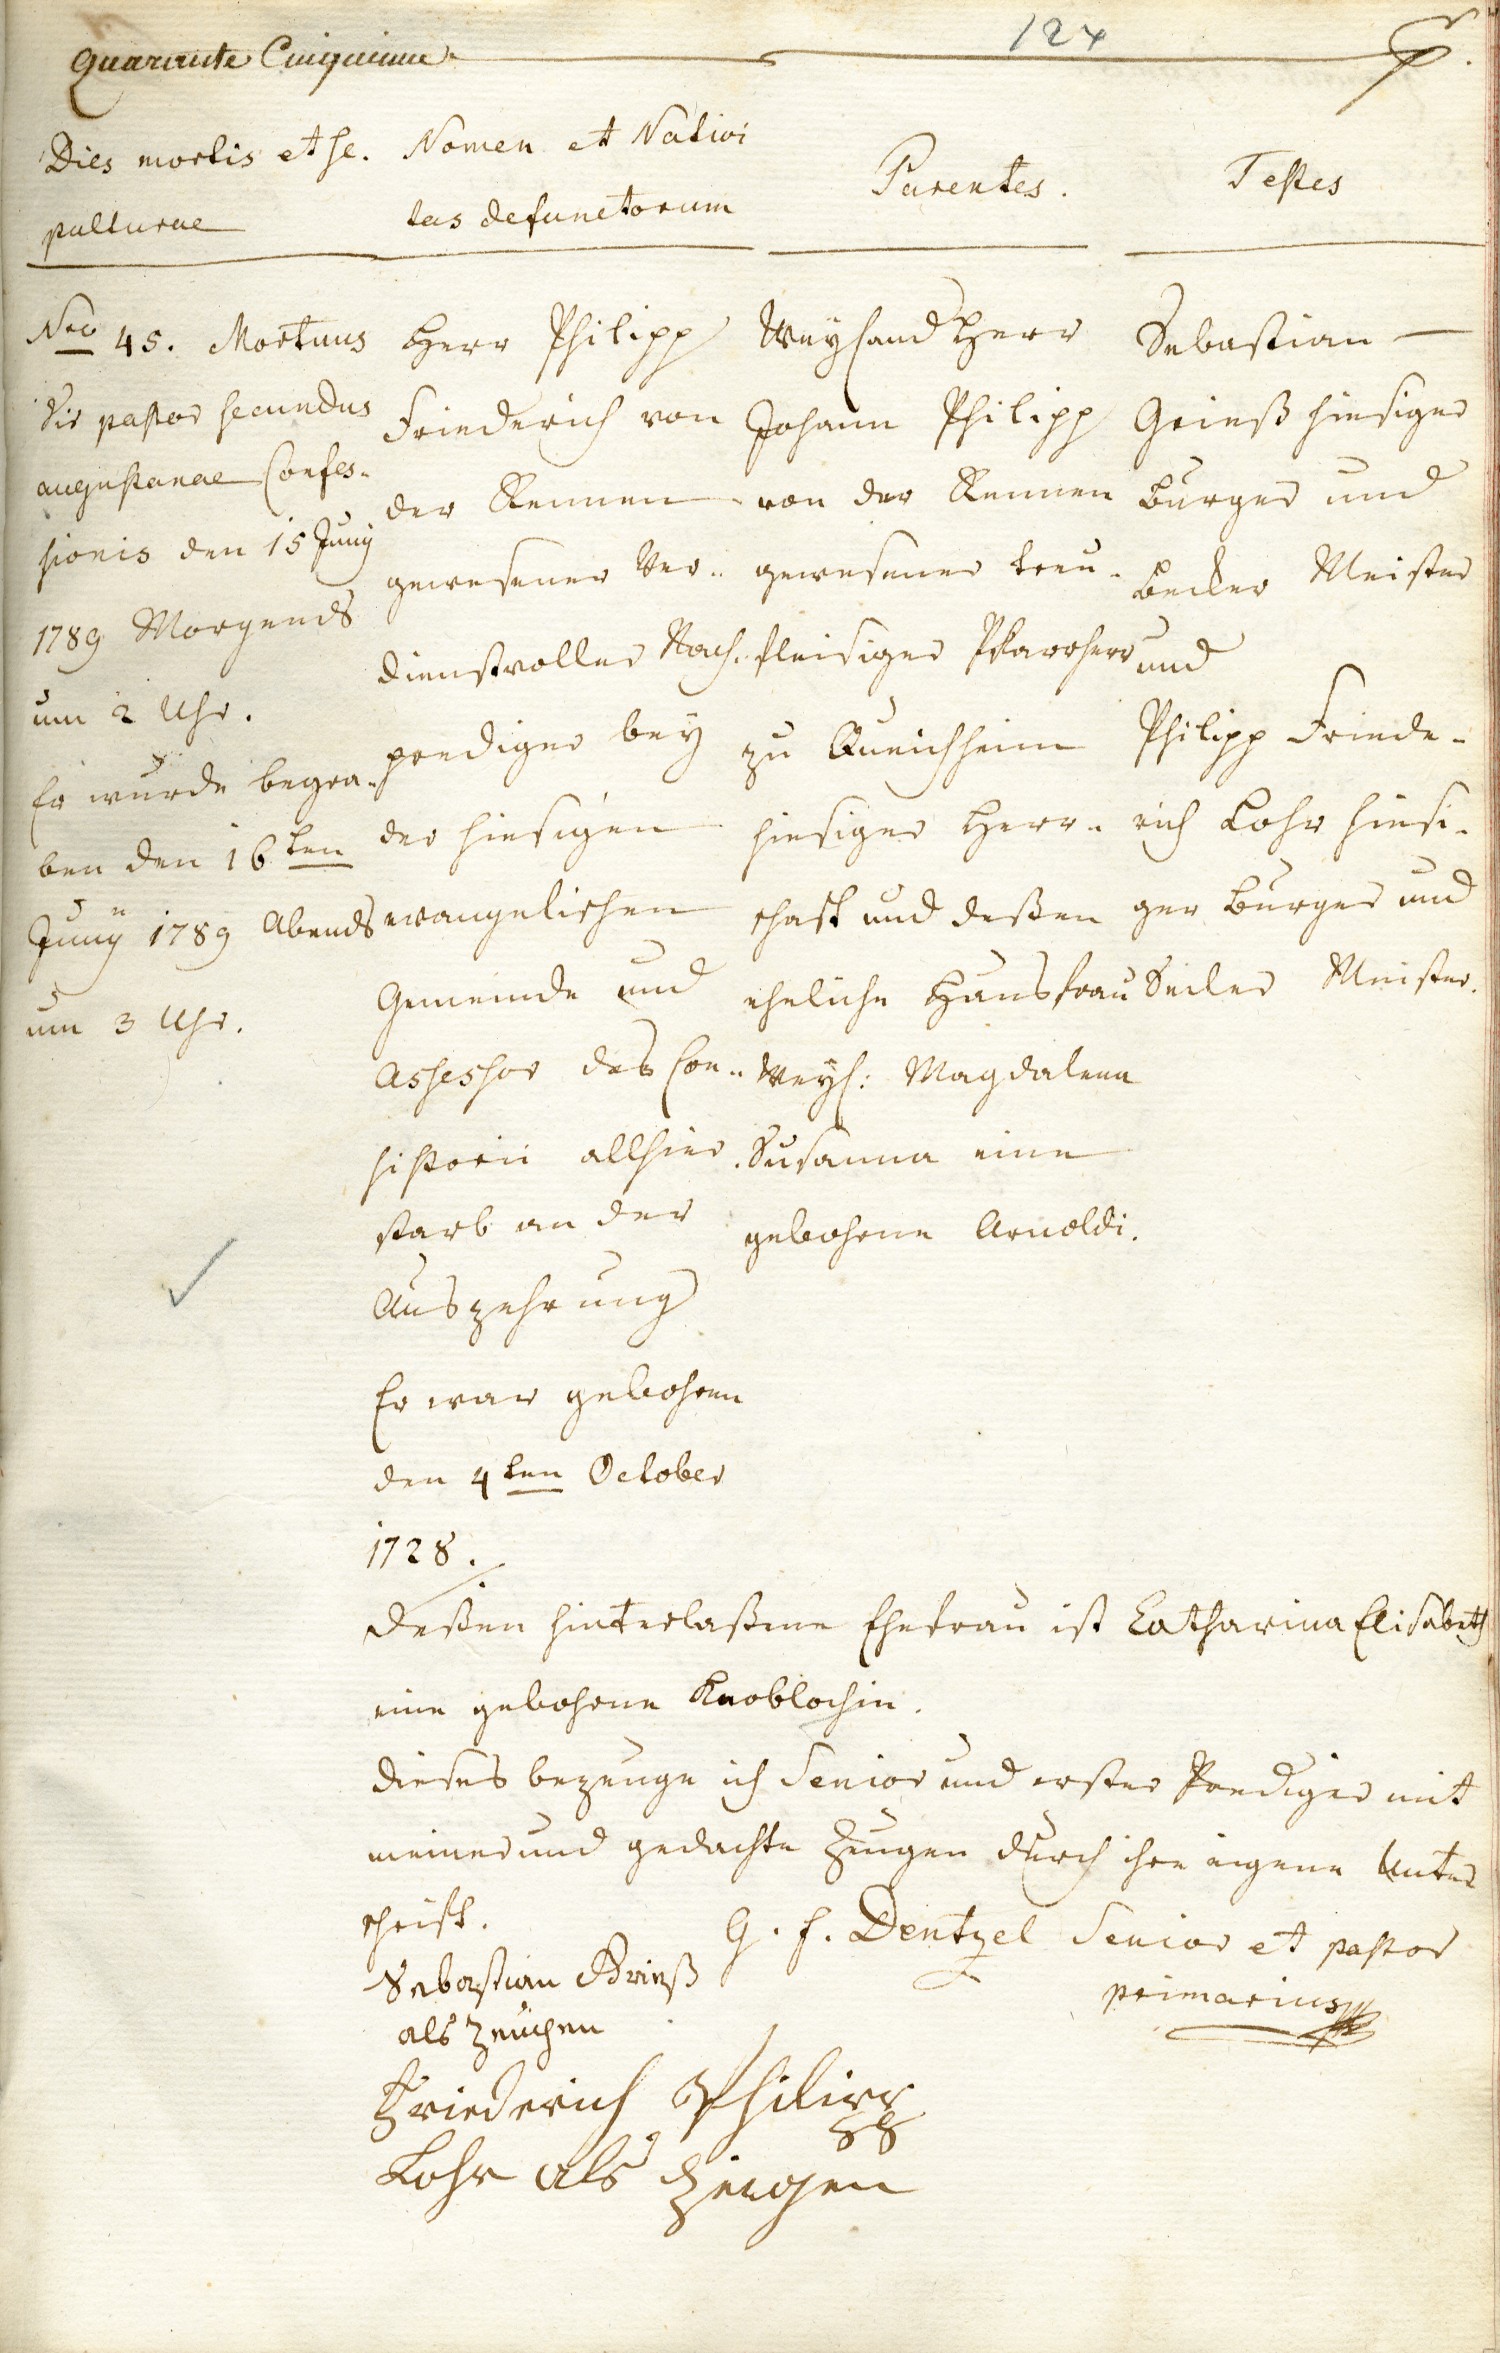 Quarante Cinquieme
124
Dies mortis et se-
pulturae
Nomen et Nativi
tas defunctorum
Parentes.
Testes
Nro 45. Mortuus
Vir pastor secundus
augustanae Confes-
sionis den 15 Junÿ
1789 Morgends
um 2 Uhr.
Er wurde begra-
ben den 16ten
Junÿ 1789 Abends
um 3 Uhr.
Herr Philipp
Friederich von
der Rennen
gewesener Ver-
dienstvoller Nach-
prediger bey
der hiesigen
evangelischen
Gemeinde und
Assessor des Con-
sistorii allhier.
starb an der
Auszehrung
Er war gebohren
den 4ten October
1728.
Weyland Herr
Johann Philipp
von der Rennen
gewesener treu-
fleisiger Pfarrherr
zu Queichheim
hiesiger Herr-
schaft und deßen
eheliche Hausfrau
Weyl: Magdalena
Susanna eine
gebohrne Arnoldi.
Sebastian
Grieß hiesiger
Burger und
Becker Meister
und
Philipp Friede-
rich Lohr hiesi-
ger Burger und
Seiler Meister.
Deßen hinterlaßene Ehefrau ist Catharina Elisabeth
eine gebohrne Knoblochin.
Dieses bezeuge ich Senior und erster Prediger mit
meiner und gedachte Zeugen durch ihre eigene Unter
schrift.
G. F. Dentzel Senior et pastor
primarius
Sebastian Grieß
als zeuchen
Friederich Philipp
Lohr als Zeugen